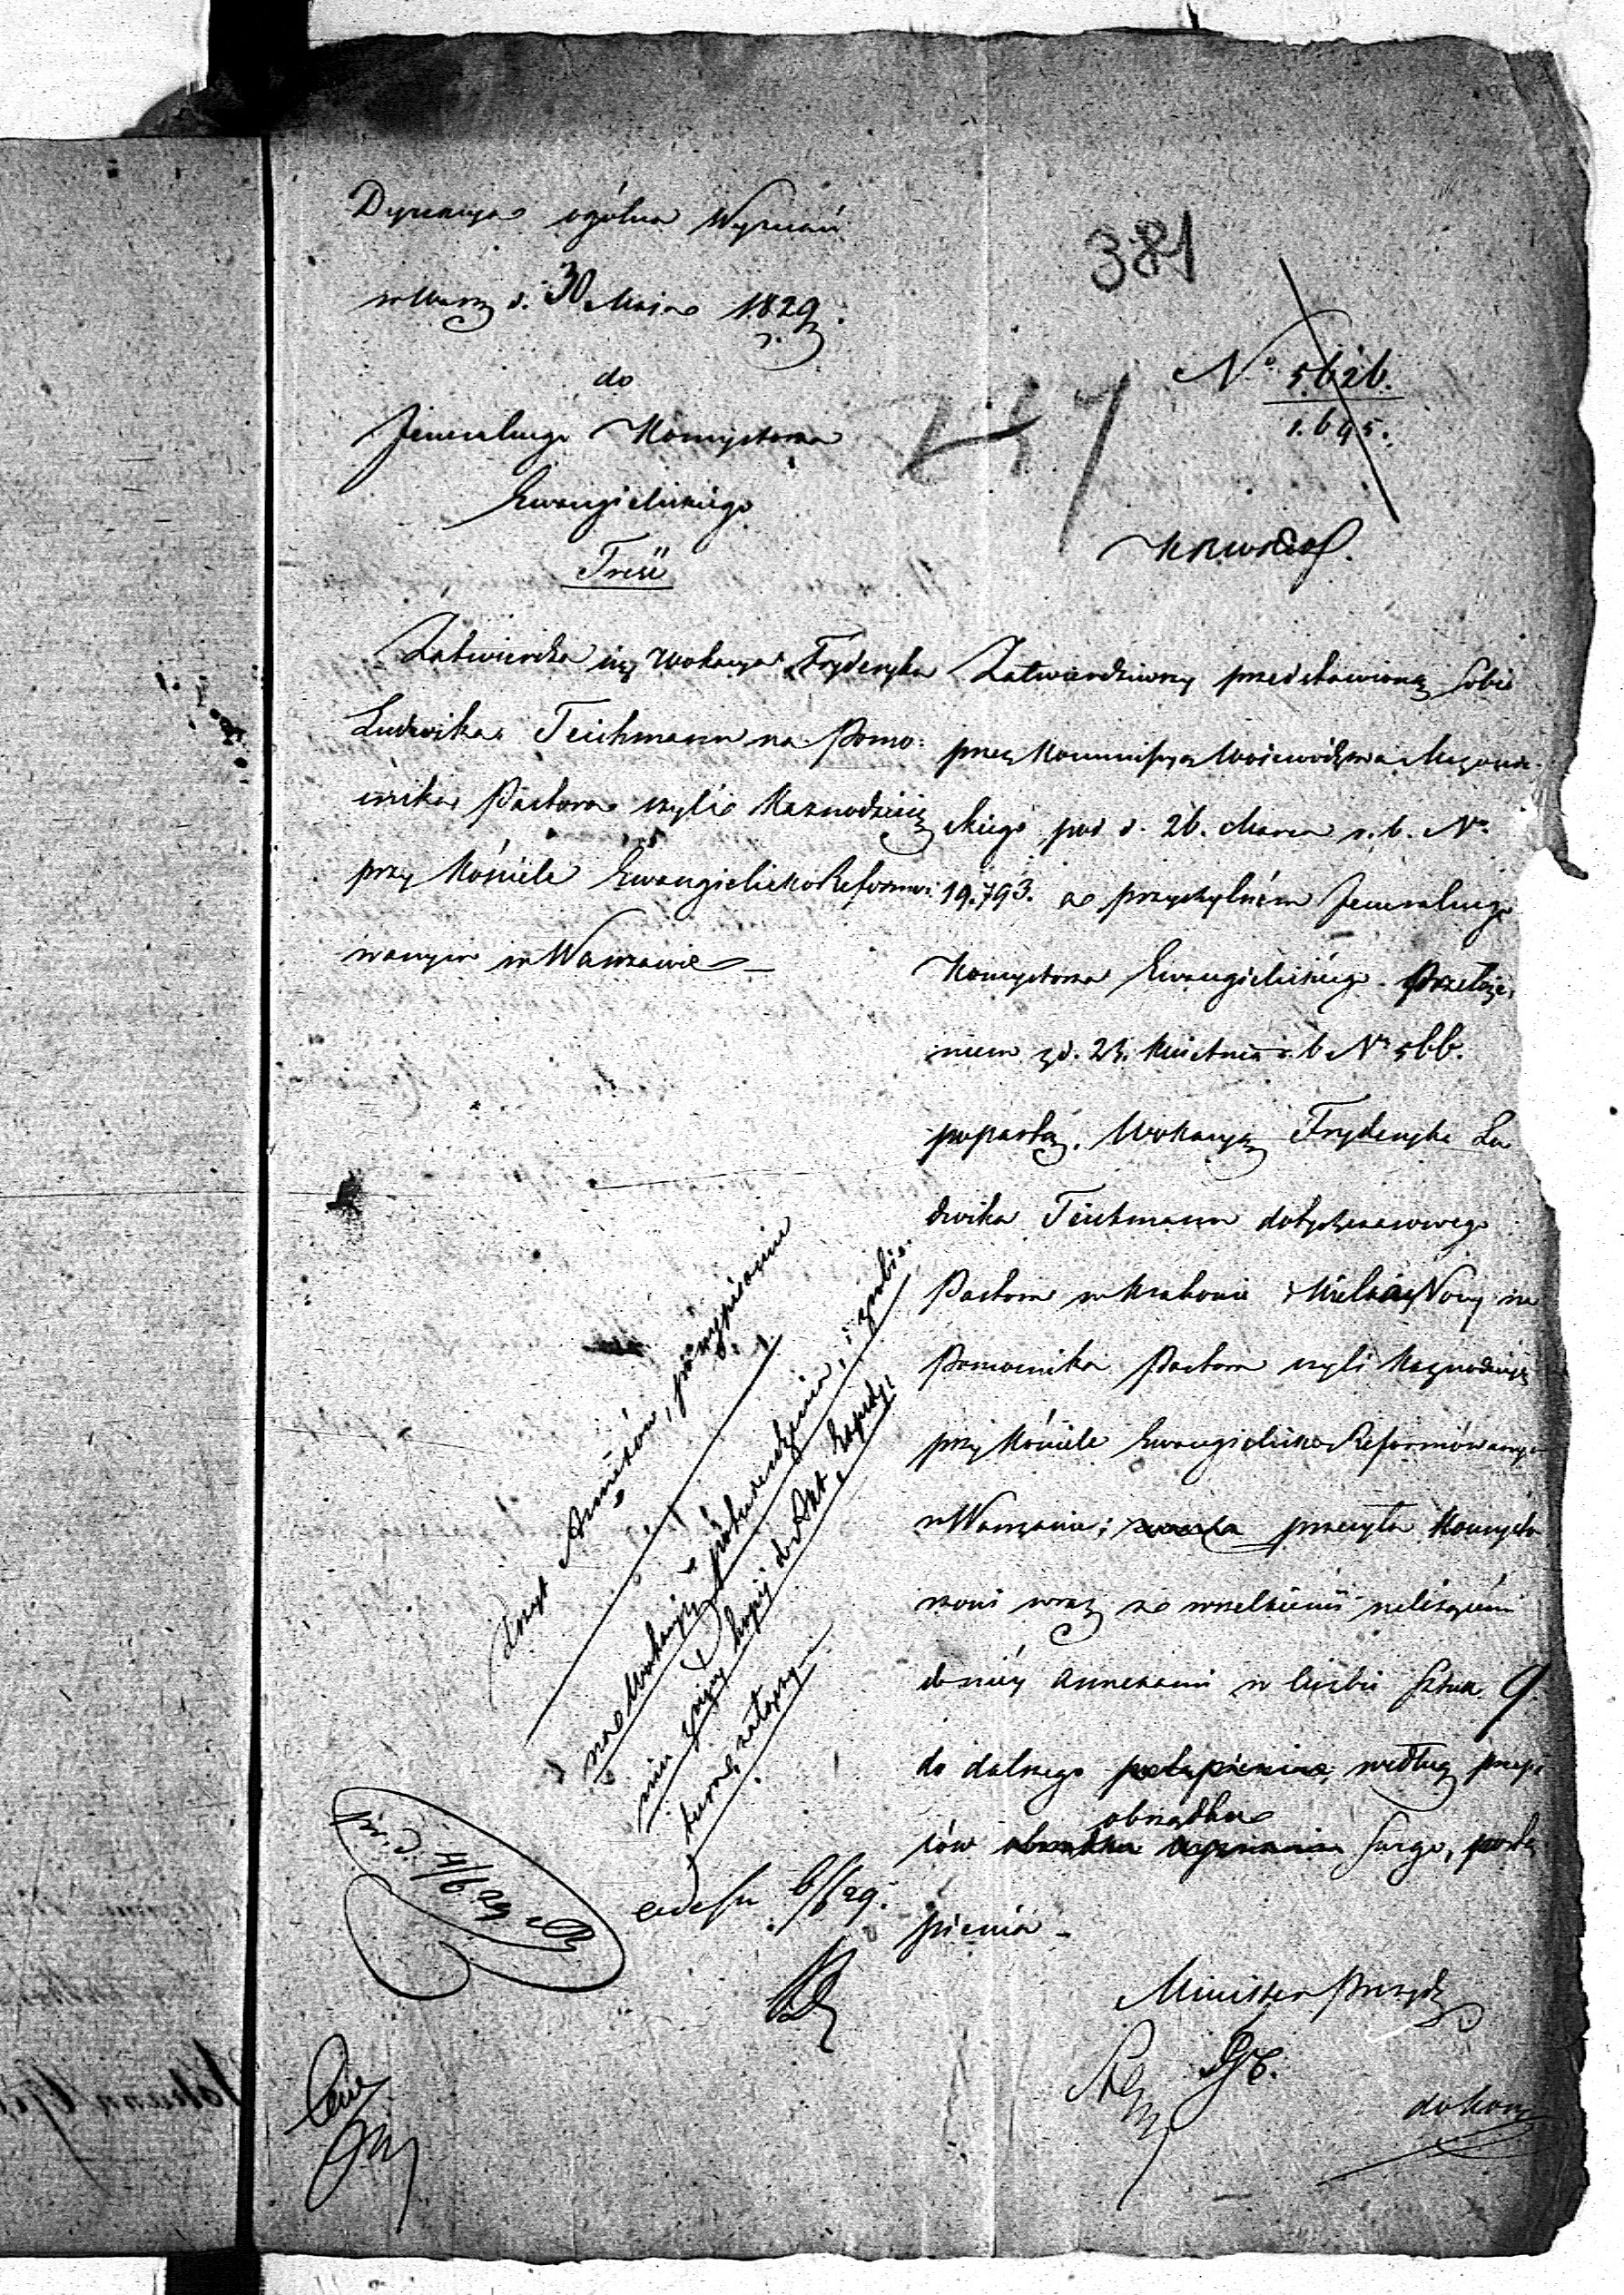 Dyrekcya ogólna Wyznań
w Warsz d. 30 Maja 1829
r.
do
Jeneralnego Konsystorza
Ewangielickiego
Treść
381
237
N° 5626.
1.695.
Zatwierdza się Wokacya Fryderyka
Ludwika Teichmann na Pomo-
cnika Pastora czyli Kaznodzieię
przy Kościele Ewangielicko Reformo-
wanym w Warszawie
Zatwierdziwszy przedstawioną sobie
przez Kommissyą Woiewództwa Mazowie-
ckiego pod d. 26. Marca r. b. N°
19.793. a przychylném Jeneralnego
Konsystorza Ewangielickiego przełoże-
niem z d. 23. Kwietnia r. b N° 566.
popartą Wokacyą Fryderyka Lu
dwika Teichmann dotychczasowego
Pastora w Krakowie i Wielkiey Nocy na
Pomocnika Pastora czyli Kaznodzieię
przy Kościele Ewangielicko Reformowanym
w Warszawie; przesyła Konsysto
rzowi wraz ze wszelkiemi należącémi
do niéy annexami w liczbie Sztuk 9.
do dalszego według przepi
sów obrządku swego, postą
pienia -
Minister Prezyd
do Kom
Przyt Annexów, po wypisaniu
na Wokacyi potwierdzenia, i zrobie-
niu z niey kopij do Akt Expedy-
tura załączy
4/6 29
eadem 6/6 29.